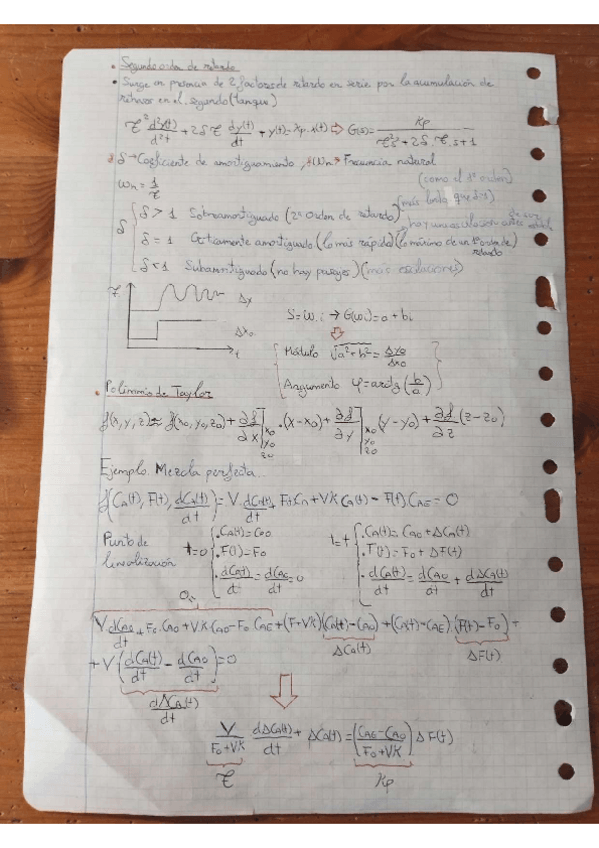 • Segundo orden de retardo
• Surge en presencia de 2 factores de retardo en serie por la acumulación de
retrasos en el segundo (tanque)
τ² d²y(t)/d²t + 2δτ dy(t)/dt + y(t) = Kp·x(t) ⇒ G(s) = Kp/(τ²s² + 2δ·τ·s + 1)
δ → Coeficiente de amortiguamiento, Wn → Frecuencia natural
Wn = 1/τ
(como el 1º orden)
δ { δ > 1 Sobreamortiguado (2º Orden de retardo) (más lenta que δ=1)
δ = 1 Críticamente amortiguado (lo más rápida) (lo máximo de un 1º orden de retardo)
δ < 1 Subamortiguado (no hay purges) (más oscilaciones)
Δy
Δx₀
t
S = Wi → G(wi) = a + bi
Módulo √(a²+b²) = Δy₀/Δx₀
Argumento φ = arctg(b/a)
• Polinomio de Taylor
f(x,y,z) ≈ f(x₀,y₀,z₀) + ∂f/∂x]x₀ y₀ z₀ ·(x-x₀) + ∂f/∂y]x₀ y₀ z₀ (y-y₀) + ∂f/∂z (z-z₀)
Ejemplo. Mezcla perfecta
f(CA(t), F(t), dCA(t)/dt) = V·dCA(t)/dt + F(t)·CA + VK CA(t) - F(t)·CAE = 0
Punto de
linealización
t=0 { ·CA(t) = CA0
·F(t) = F0
·dCA(t)/dt = dCA0/dt = 0
t=t { ·CA(t) = CA0 + ΔCA(t)
·F(t) = F0 + ΔF(t)
·dCA(t)/dt = dCA0/dt + dΔCA(t)/dt
V dCA0/dt + F0·CA0 + VK CA0 - F0 CAE + (F+VK)(CA(t) - CA0) + (CA(t) - CAE)·(F(t) - F0) +
ΔCA(t) ΔF(t)
+ V(dCA(t)/dt - dCA0/dt) = 0
dΔCA(t)/dt
V/(F0+VK) dΔCA(t)/dt + ΔCA(t) = ((CAE - CA0)/(F0+VK)) ΔF(t)
τ Kp